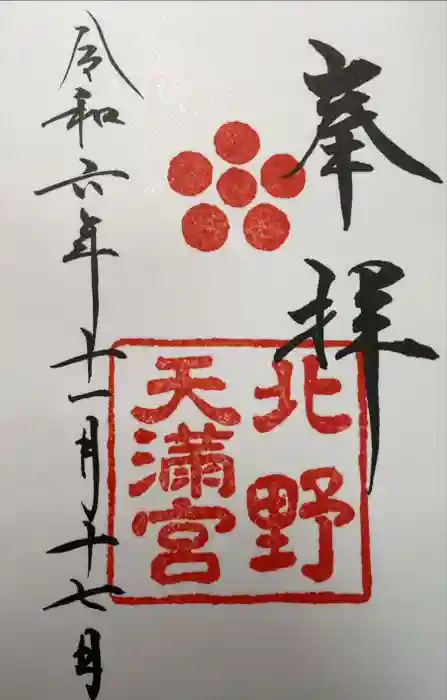 奉拝
北野
天満宮
令和六年十一月十七日